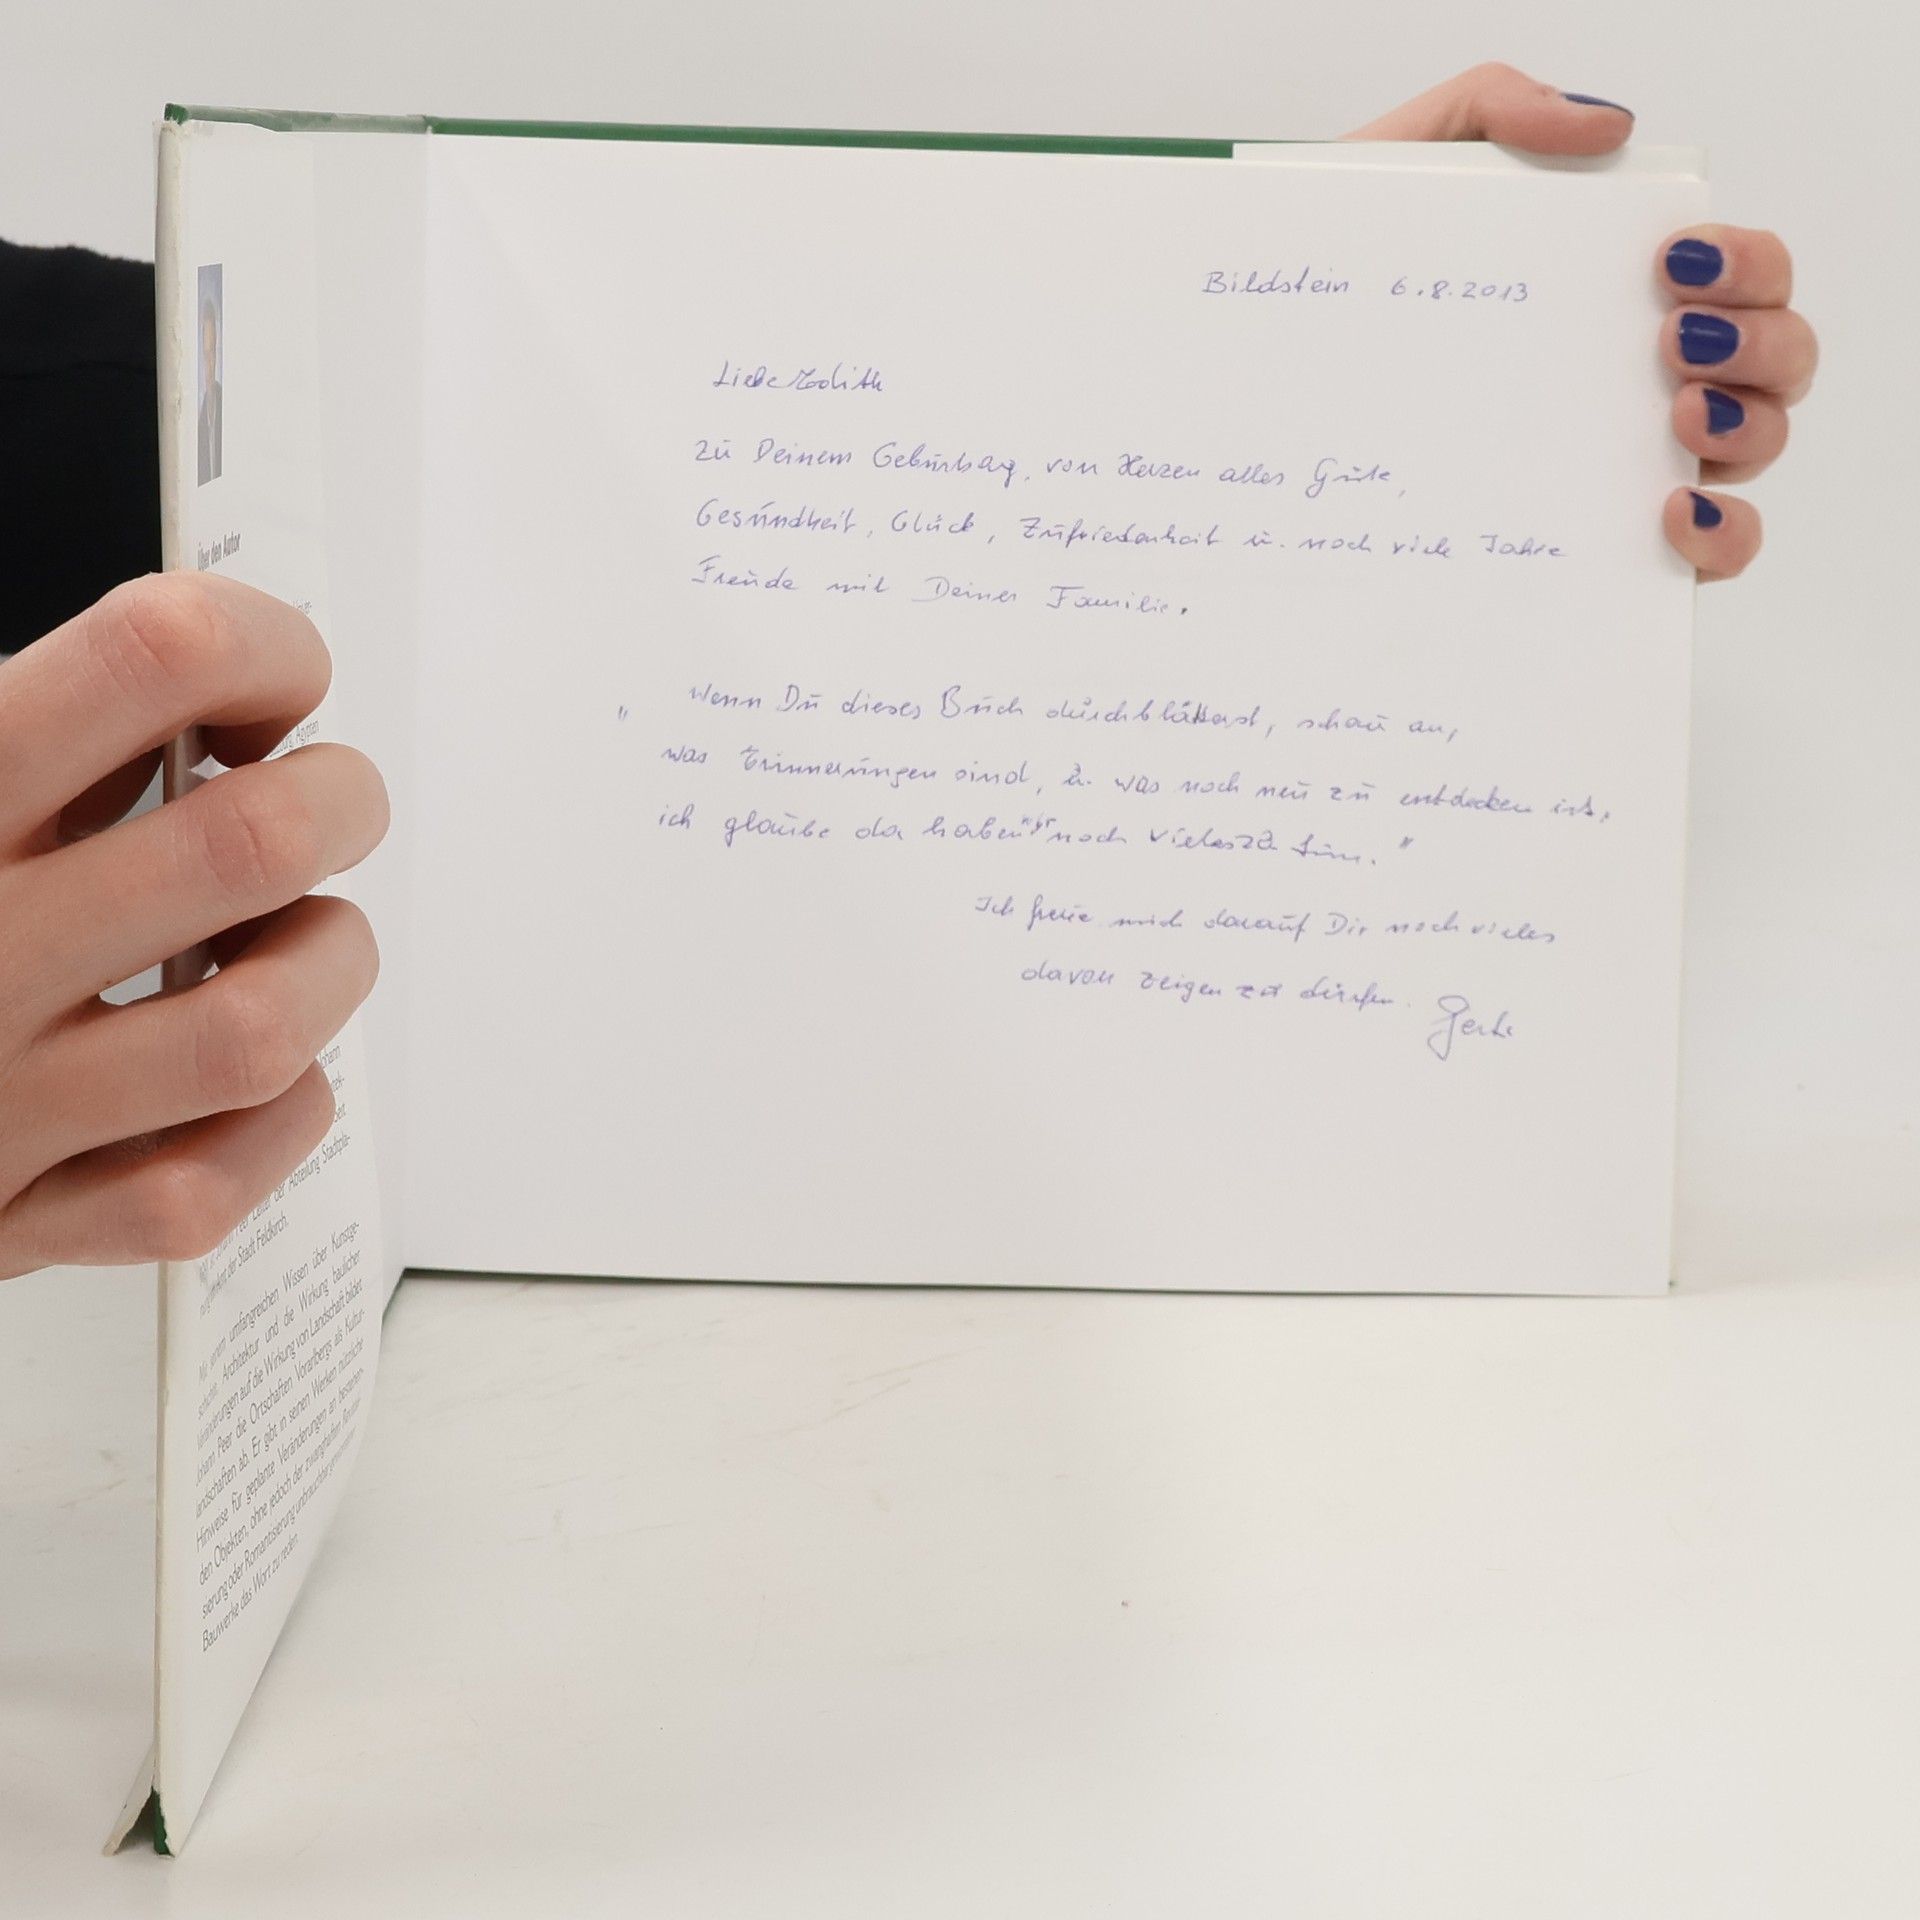 Über den Autor
Ägypten
Johann
Leiter der Abteilung Stadtpla-
der Stadt Feldkirch.
umfangreichen Wissen über Kunstge-
schichte, Architektur und die Wirkung baulicher
Veränderungen auf die Wirkung von Landschaft bildet
Johann Peer die Ortschaften Vorarlbergs als Kultur-
landschaften ab. Er gibt in seinen Werken nützliche
Hinweise für geplante Veränderungen an bestehen-
den Objekten, ohne jedoch der zwanghaften
sierung oder Romantisierung unbrauchbar
Bauwerke das Wort zu reden.
Bildstein 6.8.2013
Liebe Edith
Zu Deinem Geburtstag, von Herzen alles Gute,
Gesundheit, Glück, Zufriedenheit u. noch viele Jahre
Freude mit Deiner Familie.
" Wenn Du dieses Buch durchblätterst, schau an,
was Erinnerungen sind, u. was noch neu zu entdecken ist,
ich glaube da haben wir noch vieles zu tun. "
Ich freue mich darauf Dir noch vieles
davon zeigen zu dürfen.